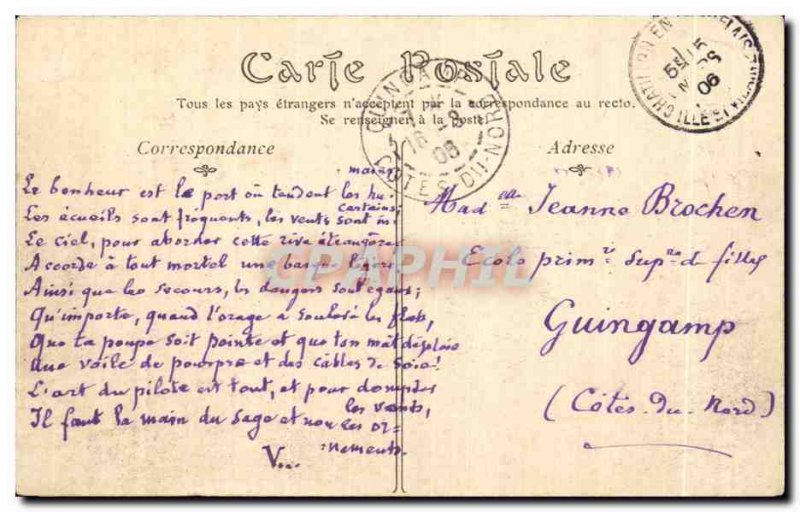 Carte Postale
Tous les pays étrangers n'acceptent pas la correspondance au recto.
Se renseigner à la poste.
Correspondance
Adresse
Le bonheur est le port où tendent les hu-
mains;
Les écueils sont fréquents, les vents sont in-
certains;
Le ciel, pour aborder cette rive étrangère
Accorde à tout mortel une barque légère
Ainsi que les secours, les dangers sont égaux;
Qu'importe, quand l'orage a soulevé les flots,
Que ta poupe soit peinte et que ton mât déploie
Une voile de pourpre et des câbles de soie!
L'art du pilote est tout, et pour dompter
les vents,
Il faut la main du sage et non les or-
nements.
V...
Mad elle Jeanne Brochen
Ecole prim re Sup re d filles
Guingamp
(Côtes-du-Nord)
GUINGAMP
16 -3
06
COTES-DU-NORD
06
ILLE ET
CPAPHIL